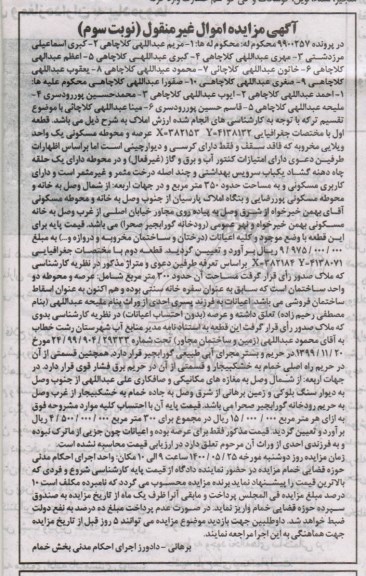 آگهی مزایده اموال غیر منقول (نوبت سوم)
در پرونده ۹۹۰۰۲۵۷ محکوم له: محکوم له ها: ۱-مریم عبداللهی کلاچاهی ۲-کبری اسماعیلی
مرزدشتی ۳- مهری عبداللهی کلاچاهی ۴- کبری عبداللهی کلاچاهی ۵- اعظم عبدالهی
کلاچاهی ۶- خاتون عبداللهی کلاچائی ۷- محمود عبداللهی کلاچاهی ۸- یعقوب عبداللهی
کلاچاهی ۹- صغری عبداللهی کلاچاهی ۱۰- صفورا عبداللهی کلاچاهی محکوم علیه ها:
۱- احمد عبداللهی کلاچاهی ۲- ایوب عبداللهی کلاچاهی ۳- محمدحسین پوررودسری ۴-
ملیحه عبداللهی کلاچاهی ۵- قاسم حسین پوررودسری ۶- مینا عبداللهی کلاچائی با موضوع
تقسیم ترکه با توجه به کارشناسی های انجام شده ارزش املاک به شرح ذیل می باشد. قطعه
اول با مختصات جغرافیایی X-۳۸۲۱۵۲ Y-۴۱۳۸۱۳۲ عرصه و محوطه مسکونی یک واحد
ویلایی مخروبه که فاقد سقف و فقط دارای کرسی و دیوارچینی است اما براساس اظهارات
طرفین دعوی دارای امتیازات کنتور آب و برق و گاز (غیرفعال) و در محوطه دارای یک حلقه
چاه دهنه گشاد یکباب سرویس بهداشتی و چند اصله درخت مثمر و غیرمثمر است و دارای
کاربری مسکونی و به مساحت حدود ۳۵۰ متر مربع و در جهات اربعه: از شمال وصل به خانه و
محوطه مسکونی پوررفضایی و بنگاه املاک پارسیان از جنوب وصل به خانه و محوطه مسکونی
آقای بهمن خیرخواه از شرق وصل به پیاده روی مجاور خیابان اصلی از غرب وصل به خانه
مسکونی بهمن خیرخواه و نهر عمومی (رودخانه گورابجیر صحرا) می باشد. قیمت پایه برای
این قطعه با وضع موجود و کلیه اعیانات (درختان و ساختمان مخروبه و دروازه و...) به مبلغ
۹/۹۷۵/۰۰۰/۰۰۰ ریال برآورد و تعیین گردید. قطعه دوم با مختصات جغرافیایی
X-۳۸۲۱۸۴ Y-۴۱۳۸۰۷۱ براساس تعرفه طرفین دعوی و متراژ مذکور در نظریه کارشناسی
که ملاک صدور رأی قرار گرفت مساحت آن حدود ۳۰۰ متر مربع شامل: عرصه و محوطه دو
واحد ساختمان است که سابق به عنوان سفره خانه سنتی بوده و هم اکنون به عنوان اسقاط
ساختمان فروشی می باشد. اعیانات به فرزند پسری احدی از وراث بنام ملیحه عبداللهی (بنام
مصطفی رحیم زاده) تعلق داشته و عرصه (بدون احتساب اعیانات) در نظریه کارشناسی بدوی
که ملاک صدور رأی قرار گرفت این قطعه به استناد نامه مدیر منابع آب شهرستان رشت خطاب
به آقای محمود عبداللهی (زمین و ساختمان مجاور) تحت شماره ۲۴/۹۹/۹۰۴/۲۹۳۳۳ مورخ
۱۳۹۹/۱۱/۲۰ در حریم و بستر مجرای آبی طبیعی گورابجیر قرار دارد. همچنین قسمتی از آن
در حریم راه اصلی خمام به خشکبیجار و قسمتی از آن در حریم برق فشار قوی قرار دارد. در
جهات اربعه: از شمال وصل به مغازه های مکانیکی و صافکاری علی عبداللهی از جنوب وصل
به دیوار سنگ بلوکی و زمین برهانی از شرق وصل به جاده خمام به خشکبیجار از غرب وصل
به حریم رودخانه گورابجیر صحرا می باشد. قیمت پایه آن با احتساب کلیه موارد مشروحه فوق
به ازای هر متر مربع ۱۵/۰۰۰/۰۰۰ ریال در مجموع برای ۳۰۰ متر مربع ۴/۵۰۰/۰۰۰/۰۰۰ ریال
برآورد و تعیین گردید. قیمت مذکور فقط برای عرصه بوده و اعیانات چون جزیی از ماترک نبوده
و به فرزندی احدی از وراث آن مرحوم تعلق دارد در ارزیابی قیمت محاسبه نشده است.
زمان مزایده روز دوشنبه مورخه ۱۴۰۰/۰۵/۲۵ ساعت ۹ الی ۱۰ مکان: واحد اجرای احکام مدنی
حوزه قضایی خمام مزایده در حضور نماینده دادگاه از قیمت پایه کارشناسی شروع و فردی که
بالاترین قیمت را پیشنهاد نماید برنده مزایده محسوب می گردد که نامبرده مکلف است ۱۰
درصد مبلغ مزایده فی المجلس پرداخت و مابقی آنرا ظرف یک ماه از تاریخ مزایده به صندوق
سپرده حوزه قضایی خمام واریز نماید. در صورت عدم پرداخت مبلغ ده درصد به نفع دولت
ضبط خواهد شد. داوطلبین جهت بازدید موضوع مزایده می توانند ۵ روز قبل از تاریخ مزایده
جهت هماهنگی به این اجرا مراجعه نمایند.
برهانی - دادورز اجرای احکام مدنی بخش خمام